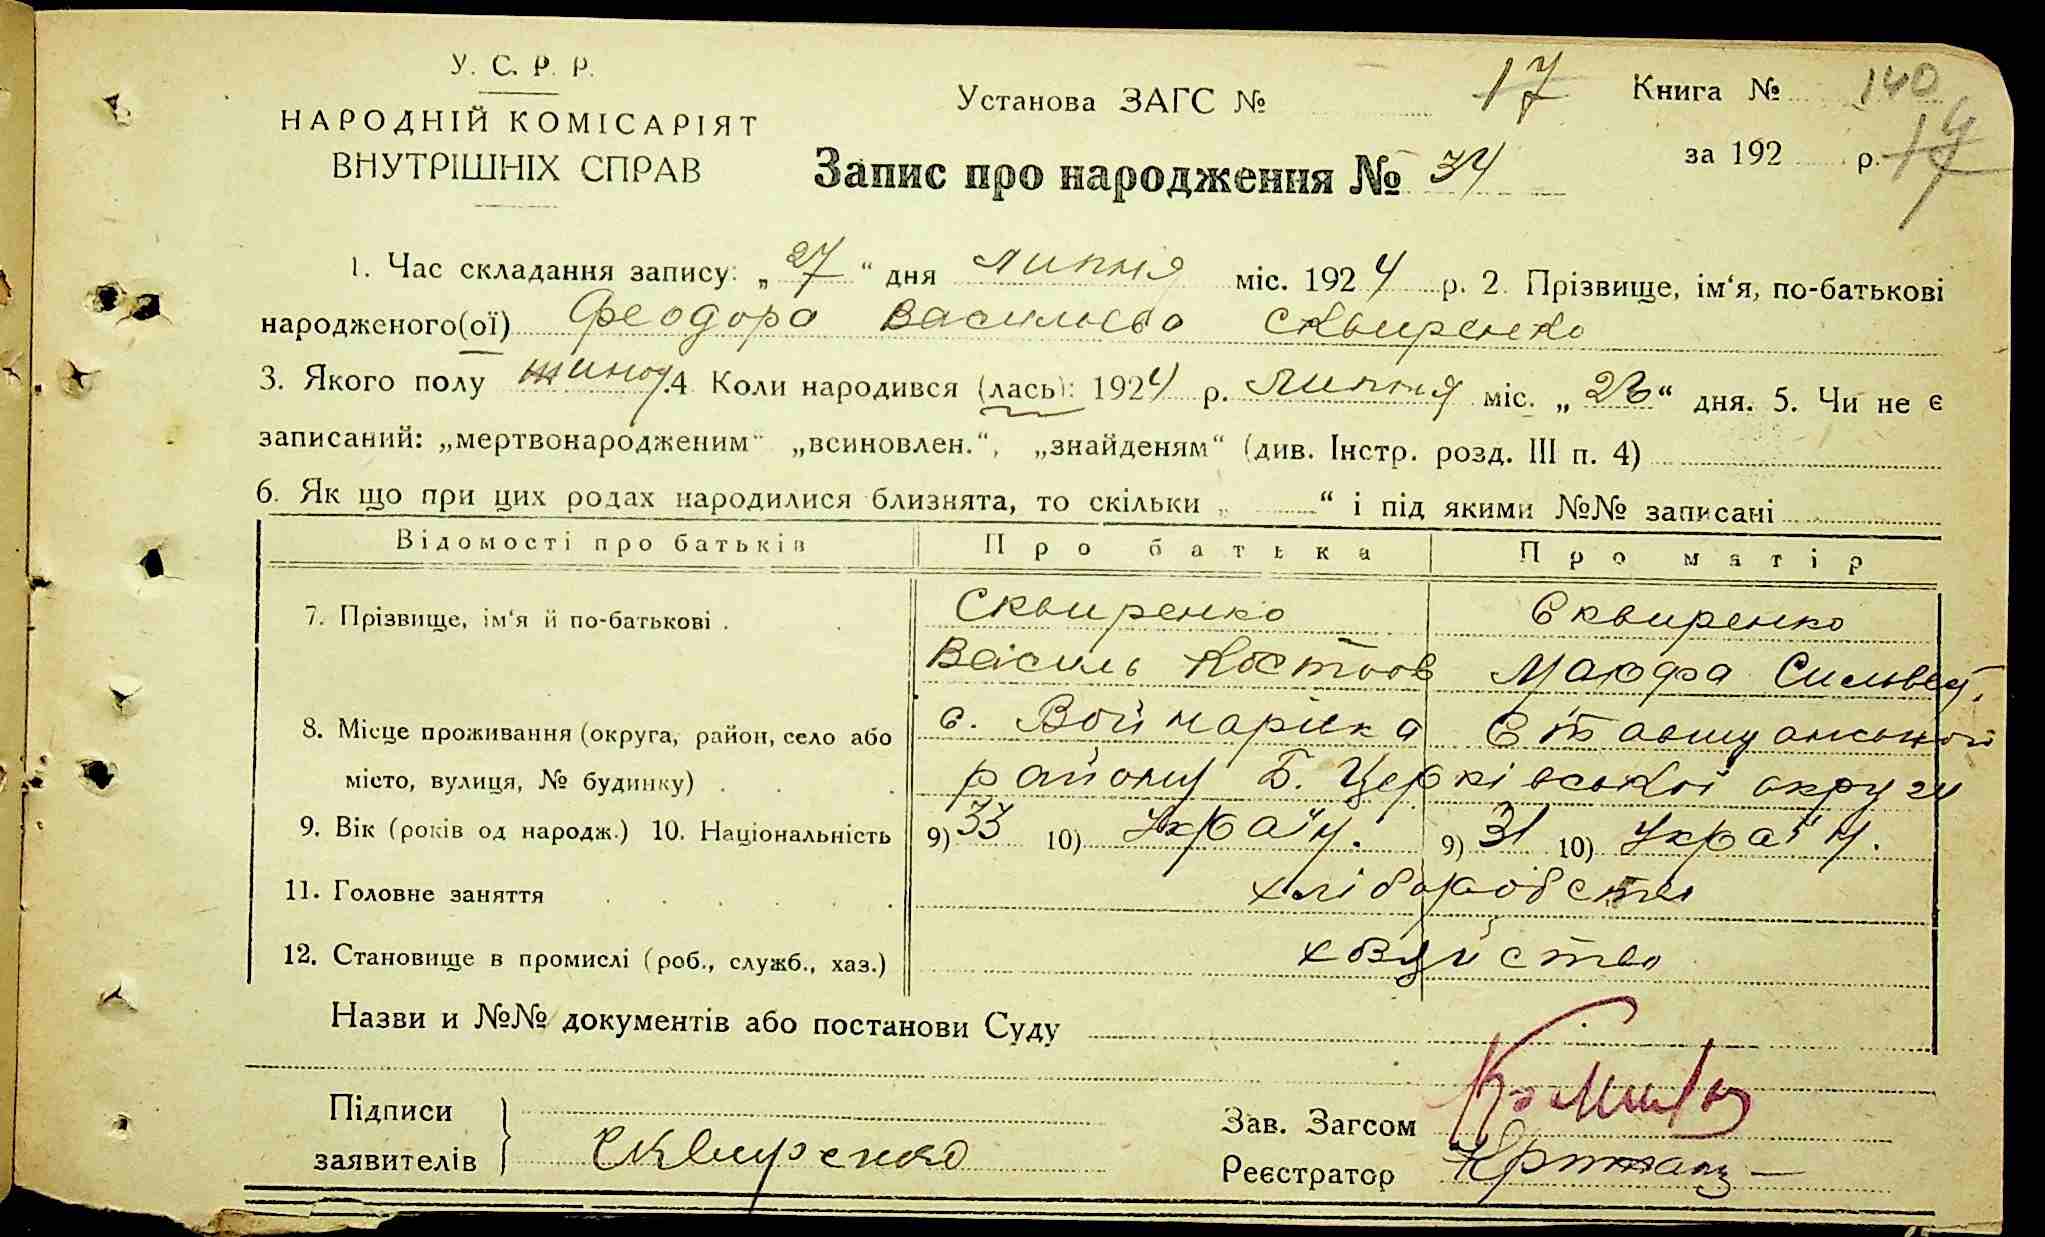 У. С. Р. Р.
НАРОДНІЙ КОМІСАРІЯТ
ВНУТРІШНІХ СПРАВ
Установа ЗАГС № 17
Книга № 140
за 192 р. 14
Запис про народження № 34
1. Час складання запису: „27“ дня липня міс. 1924 р. 2. Прізвище, ім‘я, по-батькові
народженого(ої) Феодора Васильева Сквиренко
3. Якого полу жиноч. 4 Коли народився (лась): 1924 р. Липня міс. „23“ дня. 5. Чи не є
записаний: „мертвонародженим“ „всиновлен.“, „знайденям“ (див. Інстр. розд. III п. 4)
6. Як що при цих родах народилися близнята, то скільки „ “ і під якими №№ записані
Відомості про батьків Про батька Про матір
7. Прізвище, ім‘я й по-батькові . Сквиренко Сквиренко
Василь Костов Марфа Сильвест.
8. Місце проживання (округа, район, село або с. Войнарівка Ставищанського
місто, вулиця, № будинку) . району Б. Церківської округи
9. Вік (років од народж.) 10. Національність 9) 33 10) Україн. 9) 31 10) Україн.
11. Головне заняття хліборобство
12. Становище в промислі (роб., служб., хаз.) хозяйство
Назви и №№ документів або постанови Суду
Підписи
заявителів Сквиренко
Зав. Загсом
Реєстратор